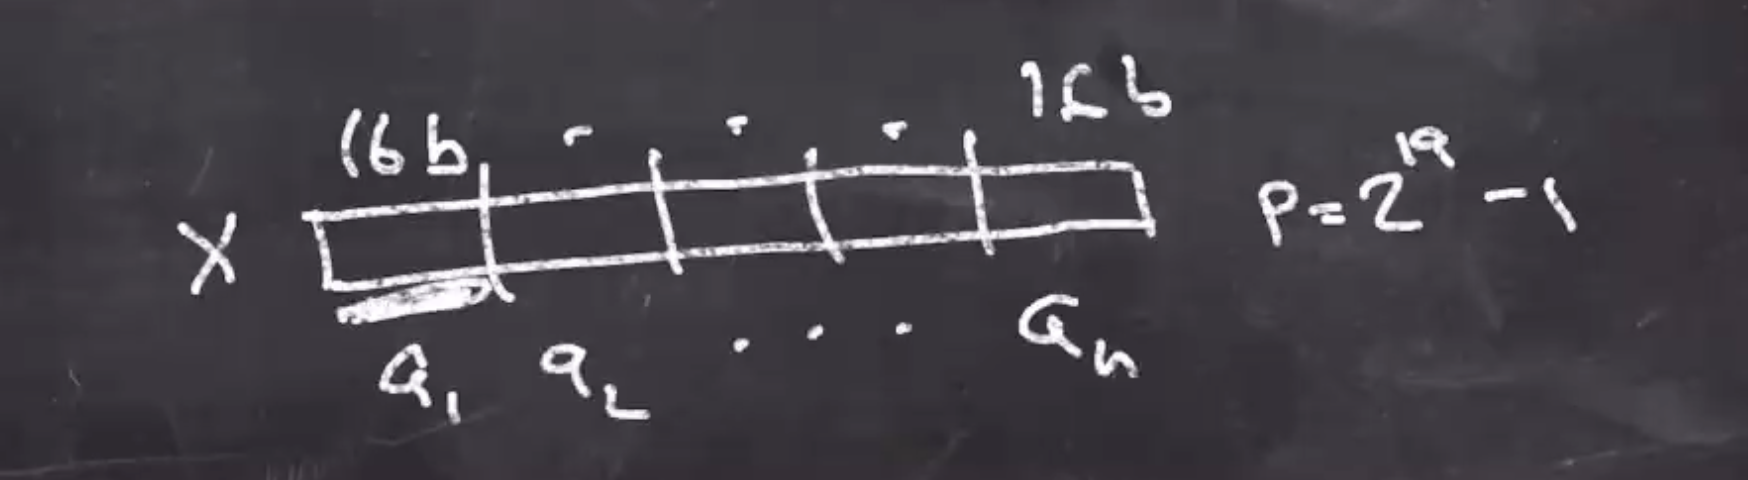 16b . . . 16b
X P=2^19 -1
a₁ a₂ . . . aₙ